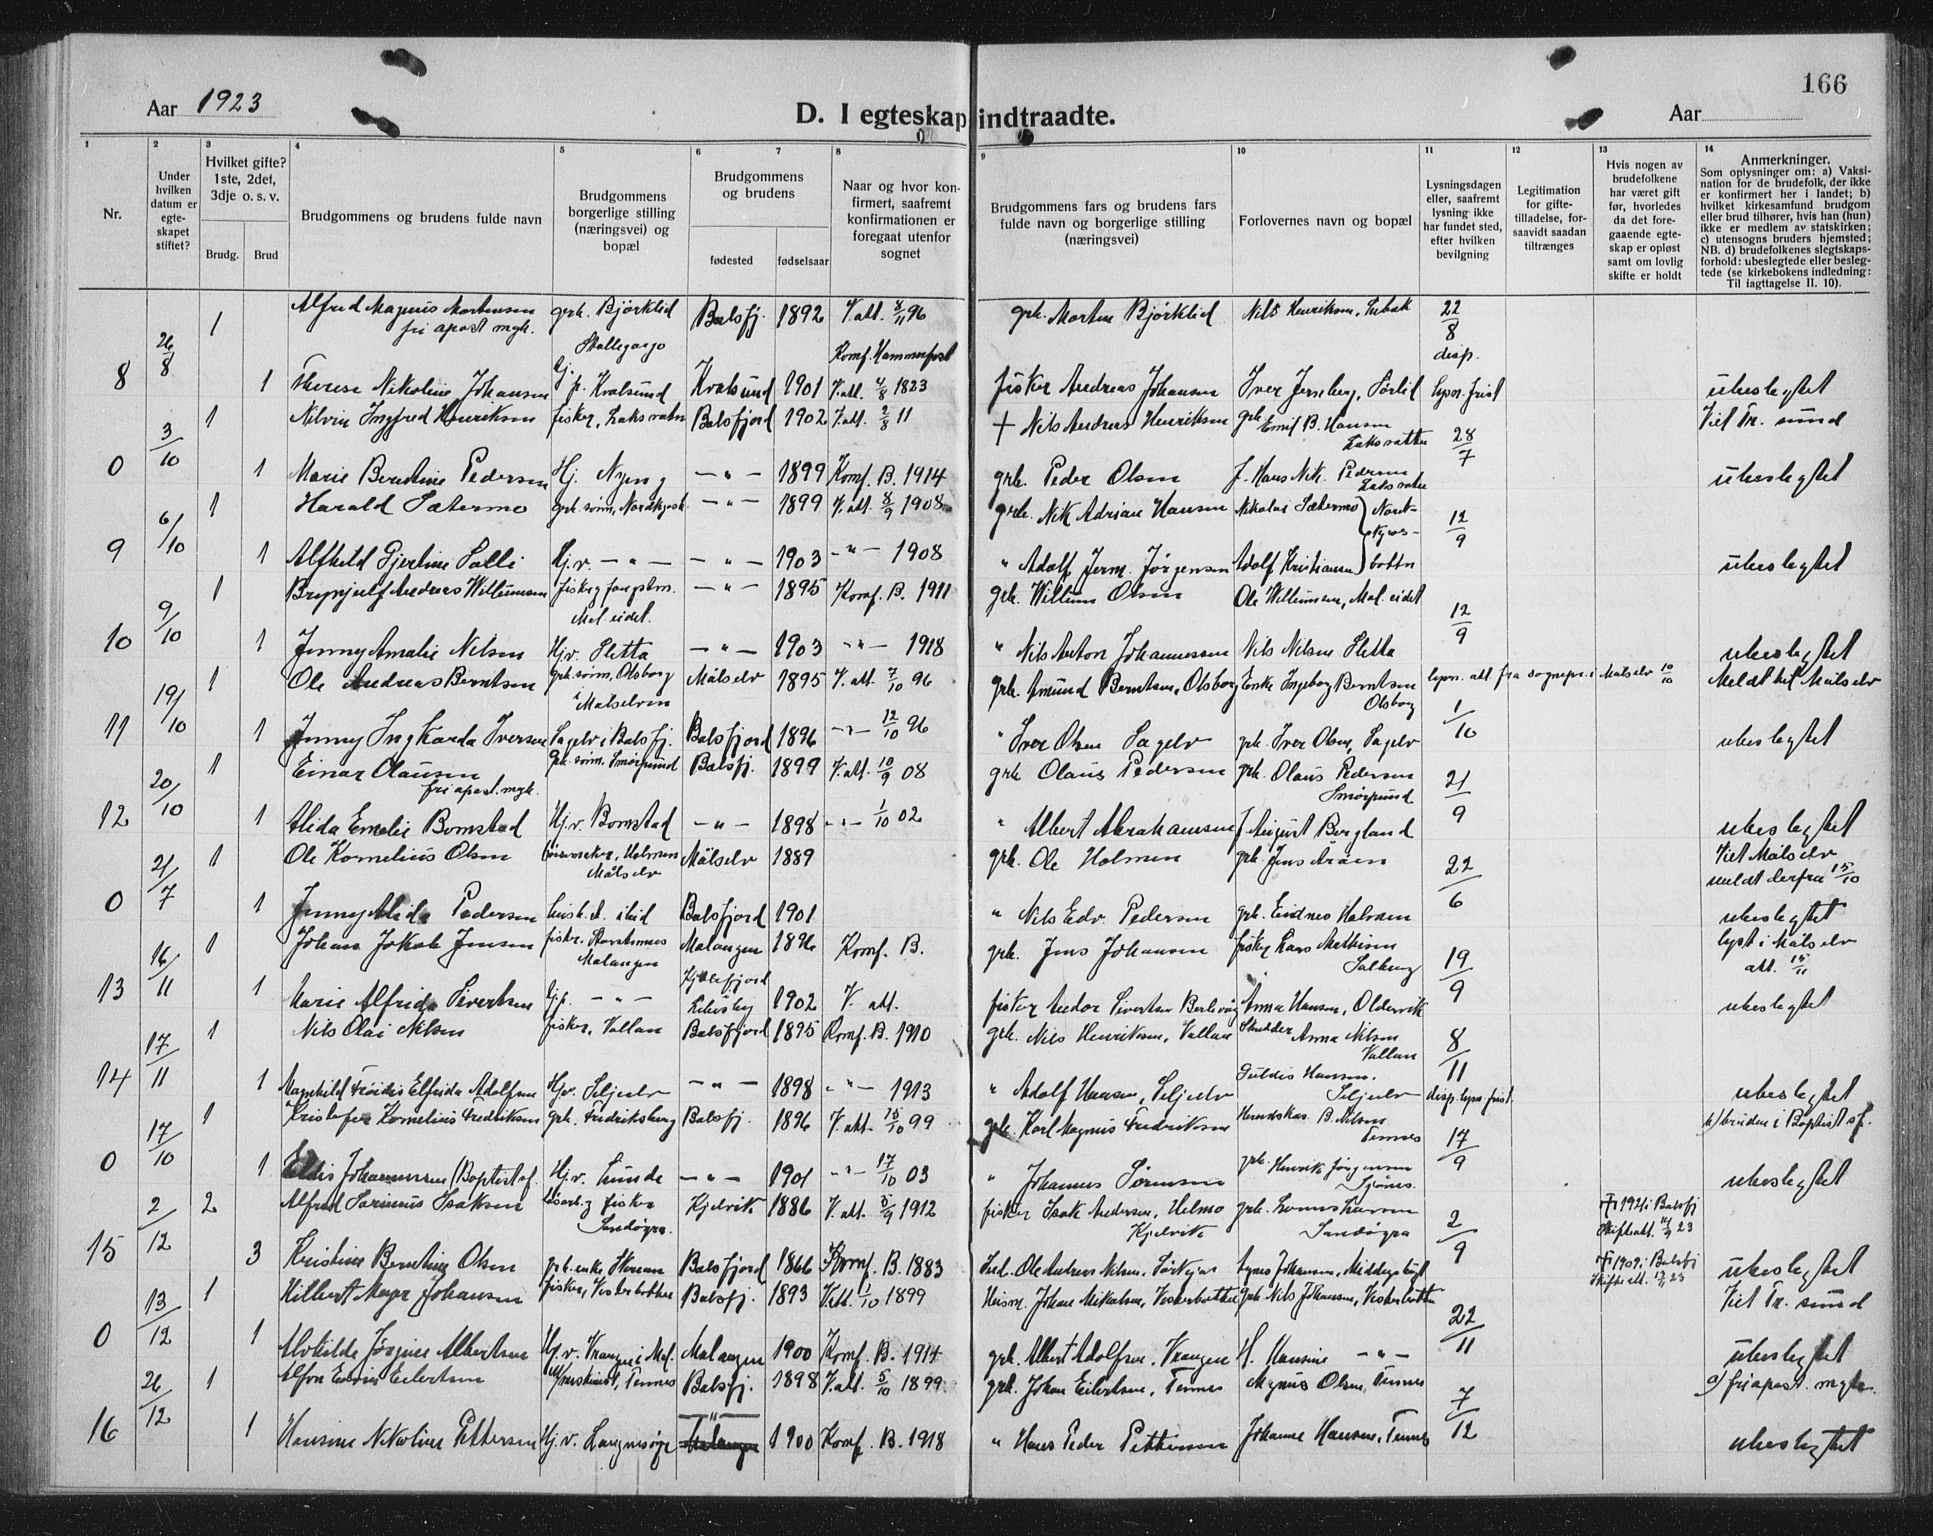 166
Aar 1923
D. I egteskap indtraadte.
Aar
1 2 3 4 5 6 7 8 9 10 11 12 13 14
Nr.
Under hvilken datum er egte-skapet stiftet?
Hvilket gifte? 1ste, 2det, 3dje o. s. v.
Brudg. Brud
Brudgommens og brudens fulde navn
Brudgommens borgerlige stilling (næringsvei) og bopæl
Brudgommens og brudens
fødested fødselsaar
Naar og hvor kon-firmert, saafremt konfirmationen er foregaat utenfor sognet
Brudgommens fars og brudens fars fulde navn og borgerlige stilling (næringsvei)
Forlovernes navn og bopæl
Lysningsdagen eller, saafremt lysning ikke har fundet sted, efter hvilken bevilgning
Legitimation for gifte-tilladelse, for-saavidt saadan tiltrænges
Hvis nogen av brudefolkene har været gift før, hvorledes da det fore-gaaende egte-skap er opløst samt om lovlig skifte er holdt
Anmerkninger.
Som oplysninger om: a) Vaksi-nation for de brudefolk, der ikke er konfirmert her i landet; b) hvilket kirkesamfund brudgom eller brud tilhører, hvis han (hun) ikke er medlem av statskirken; c) utensogns bruders hjemsted; NB. d) brudefolkenes slegtskaps-forhold: ubeslegtede eller besleg-tede (se kirkebokens indledning: Til iagttagelse II. 10).
26/8 1 Alfred Magnus Mortensen grb. Bjørklid Balsfj. 1892 V. att. 8/11 96 grb. Morten Bjørklid Nils Henriksen 22/8
fri apost. mgh. disp.
8 1 Therese Nikoline Johansen Kvalsund Kvalsund 1901 Konf. Hammerfest V. att. 4/8 1823 fisker Andreas Johansen lysn. frist ubeslegtet
3/10 1 Ingfred Henriksen fisker, Laksvatn Balsfjord 1902 V. att. 2/8 11 + Nils Andreas Henriksen grb. Emil B. Hansen Laksvatn 28/7 Viet Tr. sund
0 1 Marie Berntine Pedersen Hj. — " — 1899 Konf. B. 1914 grb. Peder Olsen f. Hans Nik. Pedersen Laksvatn ubeslegtet
6/10 1 Harald Sætermo grb. sønn, — " — 1899 V. att. 8/9 1908 grb. Nik Adrian Hansen Nikolai Sætermo 12/9
9 1 Alfhild Gjertine Solli Hj.v. — " — — " — 1903 — " — 1908 " Adolf Jørgensen Adolf Kristiansen botten ubeslegtet
9/10 1 Brynjulf Andreas Willumsen Mal. eidet. — " — 1895 Konf. B. 1911 grb. Willum Olsen Ole Willumsen, Mal. eidet 12/9
10 1 Jenny Amalie Nilsen Hj.v. Sletta — " — 1903 — " — 1918 " Nils Anton Johannessen Nils Nilsen Sletta ubeslegtet
19/10 1 Ole Andreas Berntsen grb. sønn, Olsborg i Målselven Målselv 1895 V. att. 7/10 96 grb. Amund Berntsen, Olsborg Enke Ingeborg Berntsen Olsborg lysn. att fra sognepr. i Målselv 10/10 Meldt til Målselv
11 1 Jenny Ingharda Iversen Sagelv i Balsfj. Balsfjord 1896 — " — 12/10 96 " Iver Olsen Sagelv grb. Iver Olsen, Sagelv 1/10 ubeslegtet
20/10 1 Einar Olausen grb. sønn. Smørsund Balsfj. 1899 V. att. 10/9 08 grb Olaus Pedersen grb. Olaus Pedersen Smørsund 21/9
fri apost. mgh.
12 1 Alida Emelie Bomstad Hj.v. Bomstad — " — 1898 — " — 1/10 02 " Albert Abrahamsen J August Bergland ubeslegtet
21/7 1 Ole Kornelius Olsen Holmen Målselv Målselv 1889 grb. Ole Holmen grb. Jens 22/6 Viet Målselv meldt derfra 15/10
0 1 Jenny Alida Pedersen Balsfjord 1901 " Nils Edv. Pedersen grb. Holmen ubeslegtet
16/11 1 Johan Jakob Jensen fisker. Malangen Malangen 1896 Konf. B. grb. Jens Johansen fisker Lars Mathisen 19/9 lyst i Målselv att. 15/11
13 1 Marie Alfrida Sivertsen — " — Kjøllefjord Lebesby 1902 V. att. fisker Andor Sivertsen Berlevåg Anna Hansen, Oldervik ubeslegtet
17/11 1 Nils Olai Nilsen fisker, Vallan Balsfjord 1895 Konf. B. 1910 grb. Nils Henriksen, Vallan Anna Nilsen Vallan 8/11
14 1 Magnhild Elfrida Adolfsen Hj.v. Seljelv — " — 1898 — " — 1913 " Adolf Hansen, Seljelv Hansen. Seljelv disp. lysn. frist. ubeslegtet
17/10 1 Kristofer Kornelius Fredriksen grb. Fredriksberg Balsfj. 1896 V. att. 15/10 99 grb. Karl Magnus Fredriksen B. Nilsen Tennes 17/9 b) bruden i Baptist sf.
0 1 Johannessen (Baptist sf. Hj.v. Lunde — " — 1901 — " — 17/10 03 " Johannes Sørensen grb. Henrik Jørgensen ubeslegtet
2/12 2 Alfred Isaksen fisker Sandøgra. Kjelvik 1886 V. att. 5/9 1912 fisker Isak Andersen, Helmo Kjelvik grb. Sandøgra 2/9 + 1921 i Balsfj
15 3 Kristine Berntine Olsen grb. enke Balsfjord 1866 Konf. B. 1883 Ole Andreas Nilsen, Johansen, + 1909 i Balsfj ubeslegtet
13/12 1 Hilbert Meyer Johansen fisker, Vesterbotten Balsfj. 1893 V. att. 1/10 1899 Johan Mikalsen, Vesterbotten grb Nils Johansen, Vesterbotten 22/11 Viet Tr. sund
0 1 Alvhilde Albertsen Hj.v. Vrangen i Mal. Malangen 1900 Konf. B. 1914 grb. Albert Adolfsen, Vrangen H. Hansine — " — ubeslegtet
26/12 1 Eilertsen Tennes Balsfj. 1898 V. att. 5/10 1899 grb. Johan Eilertsen, Tennes Magnus Olsen, Tennes 7/12 a) fri apost. mgh.
16 1 Hansine Nikoline Pettersen Hj.v. — " — Malangen 1900 Konf. B. 1918 " Hans Peder Pettersen Johanne Hansen, Tennes ubeslegtet